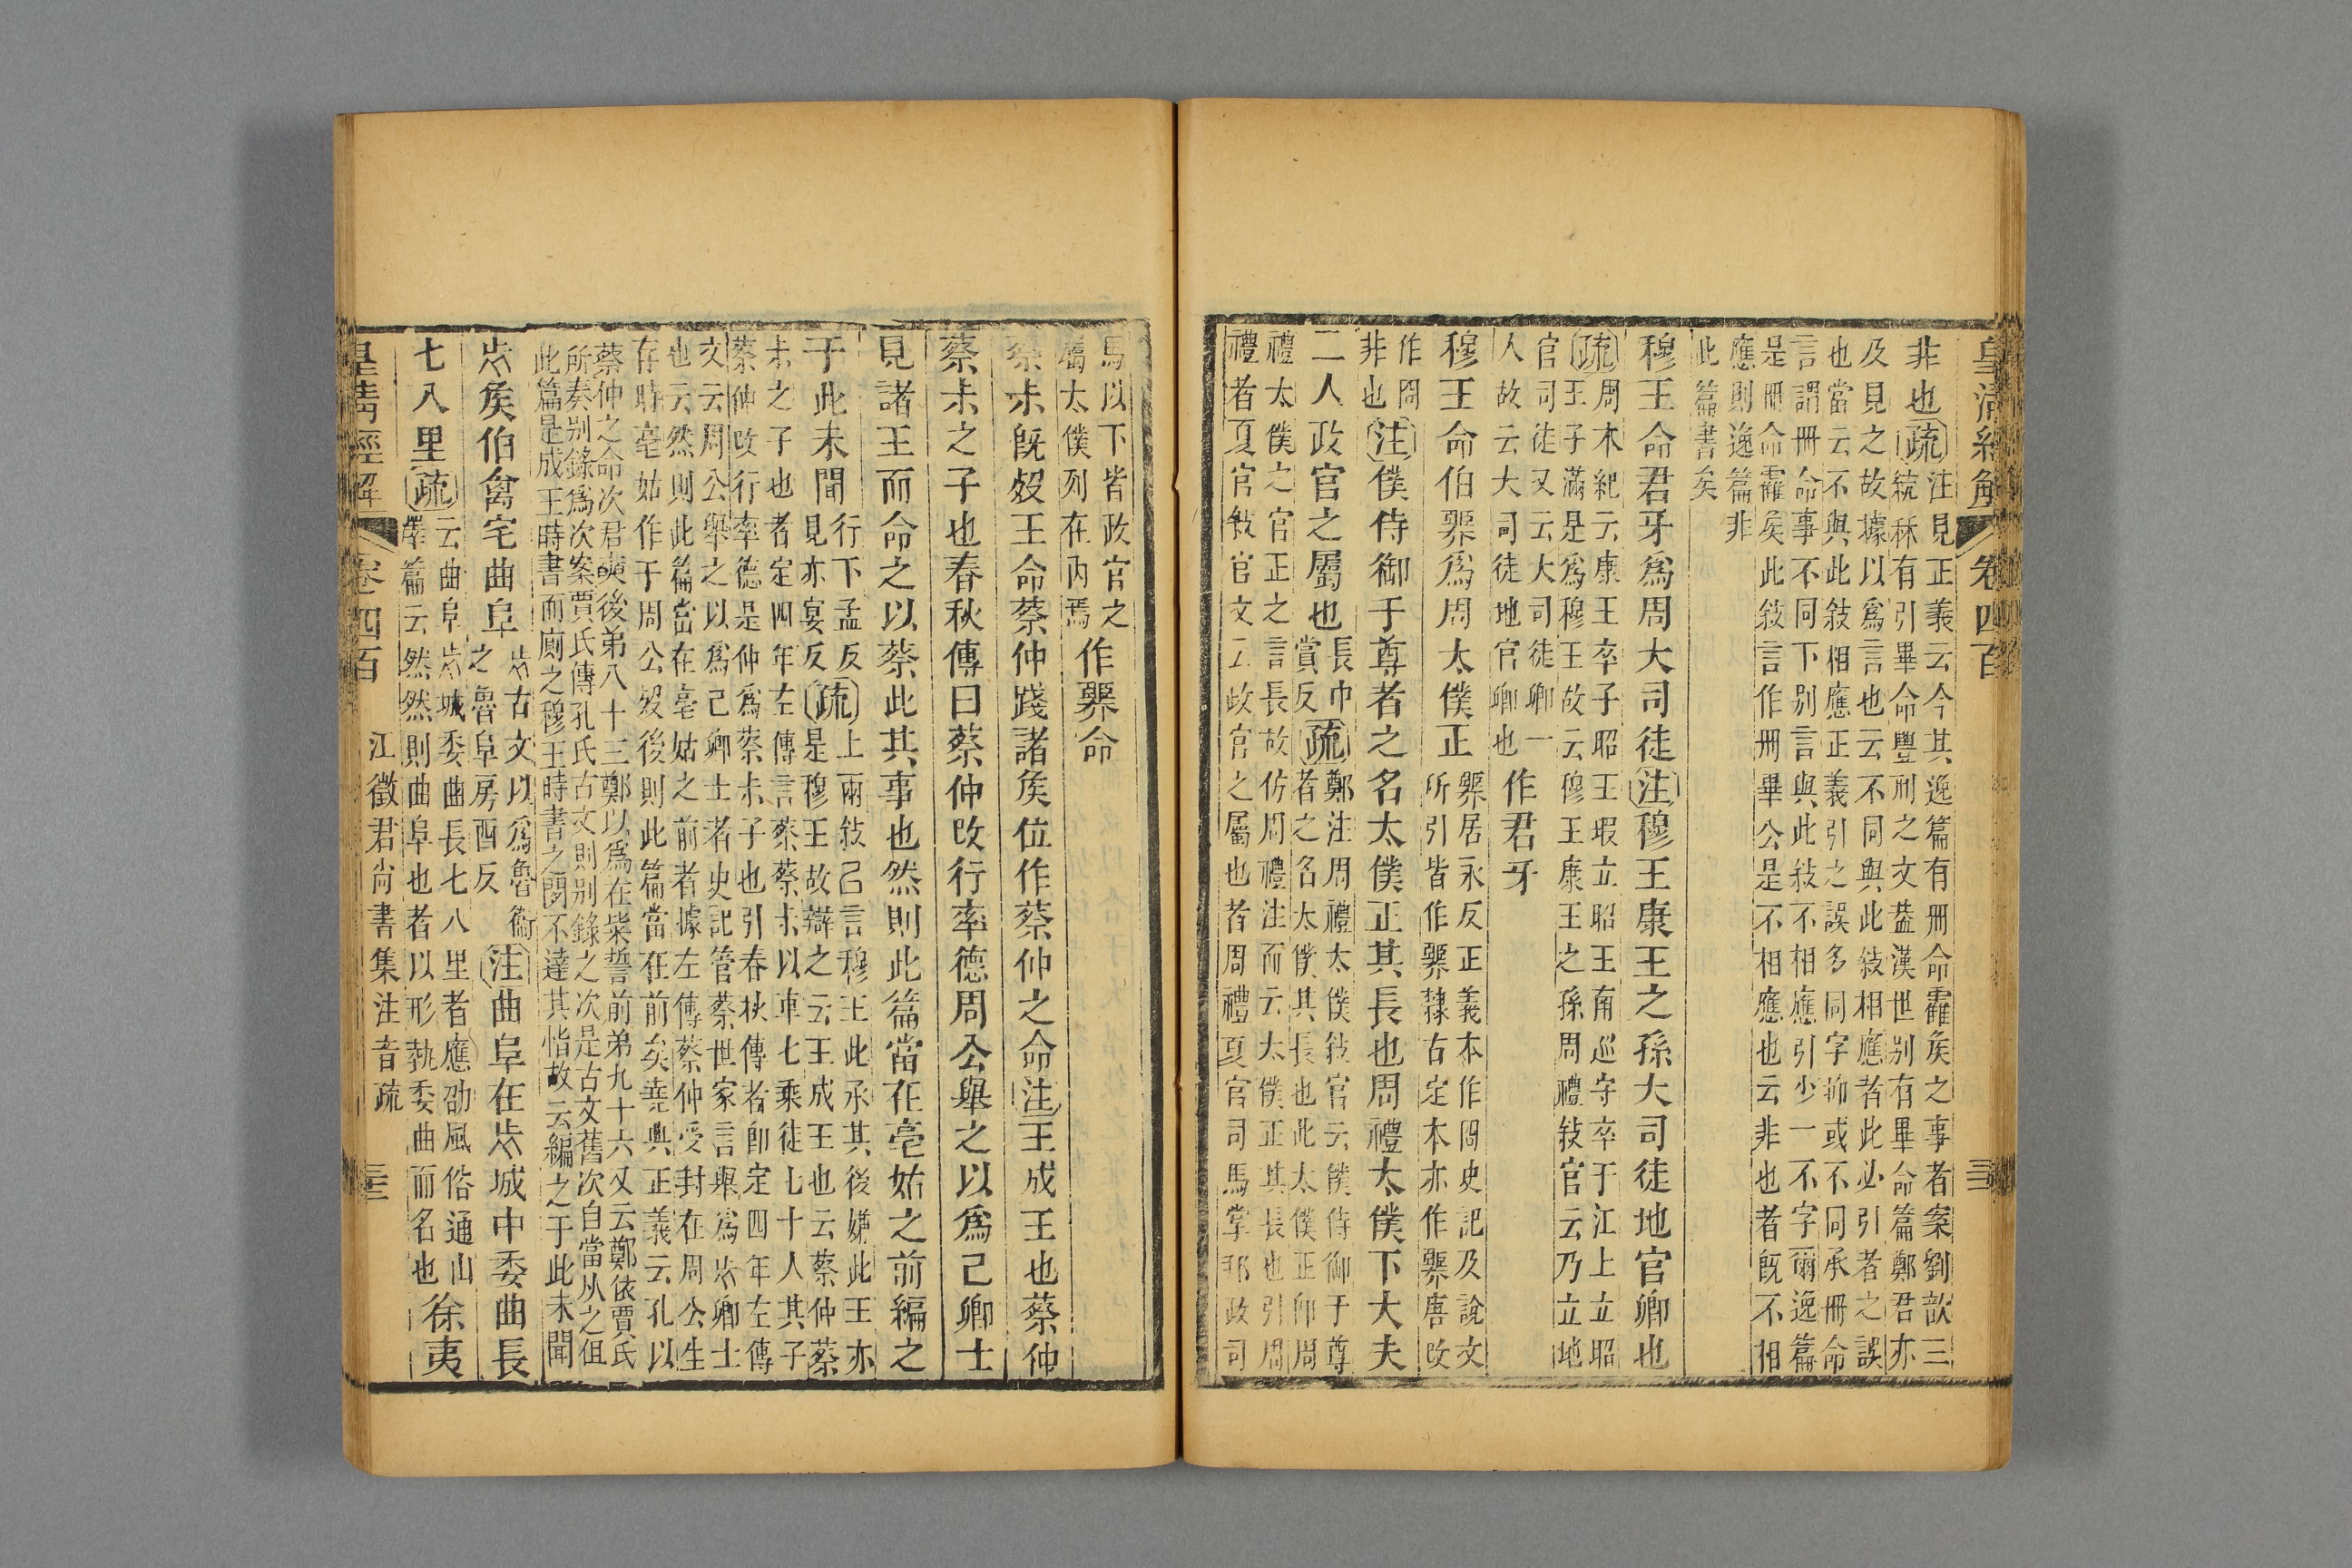 皇清經解
卷四百
非也疏注見正義云今其逸篇有冊命霍矦之事者案劉歆三
統秝有引畢命豐刑之文葢漢世別有畢命篇鄭君亦
及見之故據以爲言也云不同與此敍相應者此必引者之誤
也當云不與此敍相應正義引之誤多同字抑或不同承冊命
言謂冊命事不同下別言與此敍不相應引少一不字爾逸篇
是冊命霍矦此敍言作冊畢公是不相應也云非也者旣不相
應則逸篇非
此篇書矣
穆王命君牙爲周大司徒注穆王康王之孫大司徒地官卿也
疏周本紀云康王卒子昭王瑕立昭王南巡守卒于江上立昭
王子滿是爲穆王故云穆王康王之孫周禮敍官云乃立地
官司徒又云大司徒卿一
人故云大司徒地官卿也
作君牙
穆王命伯臩爲周太僕正
臩居永反正義本作冏史記及說文
所引皆作臩隸古定本亦作臩唐改
作冏
非也
注僕侍御于尊者之名太僕正其長也周禮太僕下大夫
二人政官之屬也
長巾
賞反
疏鄭注周禮太僕敍官云僕侍御于尊
者之名太僕其長也此太僕正卽周
禮太僕之官正之言長故仿周禮注而云太僕正其長也引周
禮者夏官敍官文云政官之屬也者周禮夏官司馬掌邦政司
馬以下皆政官之
屬太僕列在內焉
作臩命
蔡尗旣歿王命蔡仲踐諸矦位作蔡仲之命注王成王也蔡仲
蔡尗之子也春秋傳曰蔡仲改行率德周公舉之以爲己卿士
見諸王而命之以蔡此其事也然則此篇當在亳姑之前編之
于此未聞
行下孟反
見亦宴反
疏上兩敍已言穆王此承其後嫌此王亦
是穆王故辯之云王成王也云蔡仲蔡
尗之子也者定四年左傳言蔡蔡尗以車七乘徒七十人其子
蔡仲改行率德是仲爲蔡尗子也引春秋傳者卽定四年左傳
文云周公舉之以爲己卿士者史記管蔡世家言舉爲魯卿士
也云然則此篇當在亳姑之前者據左傳蔡仲受封在周公生
存時亳姑作于周公歿後則此篇當在前矣堯典正義云孔以
蔡仲之命次君奭後弟八十三鄭以爲在柴誓前弟九十六又云鄭依賈氏
所奏別錄爲次案賈氏傳孔氏古文則別錄之次是古文舊次自當从之但
此篇是成王時書而廁之穆王時書之閒不達其恉故云編之于此未聞
𣥐矦伯禽宅曲阜
𣥐古文以爲魯衞
之魯阜房酉反
注曲阜在𣥐城中委曲長
七八里疏云曲阜𣥐城委曲長七八里者應劭風俗通山
澤篇云然然則曲阜也者以形埶委曲而名也
徐夷
皇清經解
卷四百
江徵君尚書集注音疏